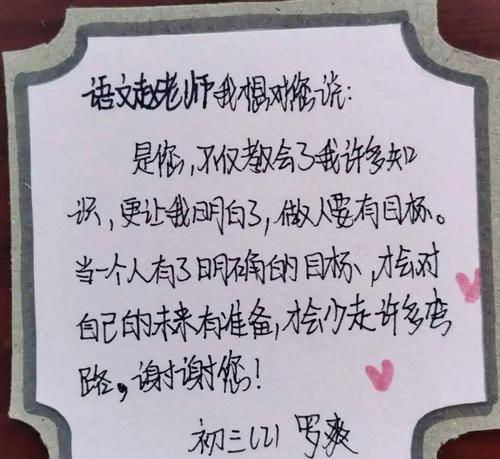 语文赵老师我想对您说：
是您，不仅教会了我许多知
识，更让我明白了，做人要有目标。
当一个人有了明确的目标，才会对
自己的未来有准备，才会少走许多弯
路，谢谢您！
初三(2) 罗爽